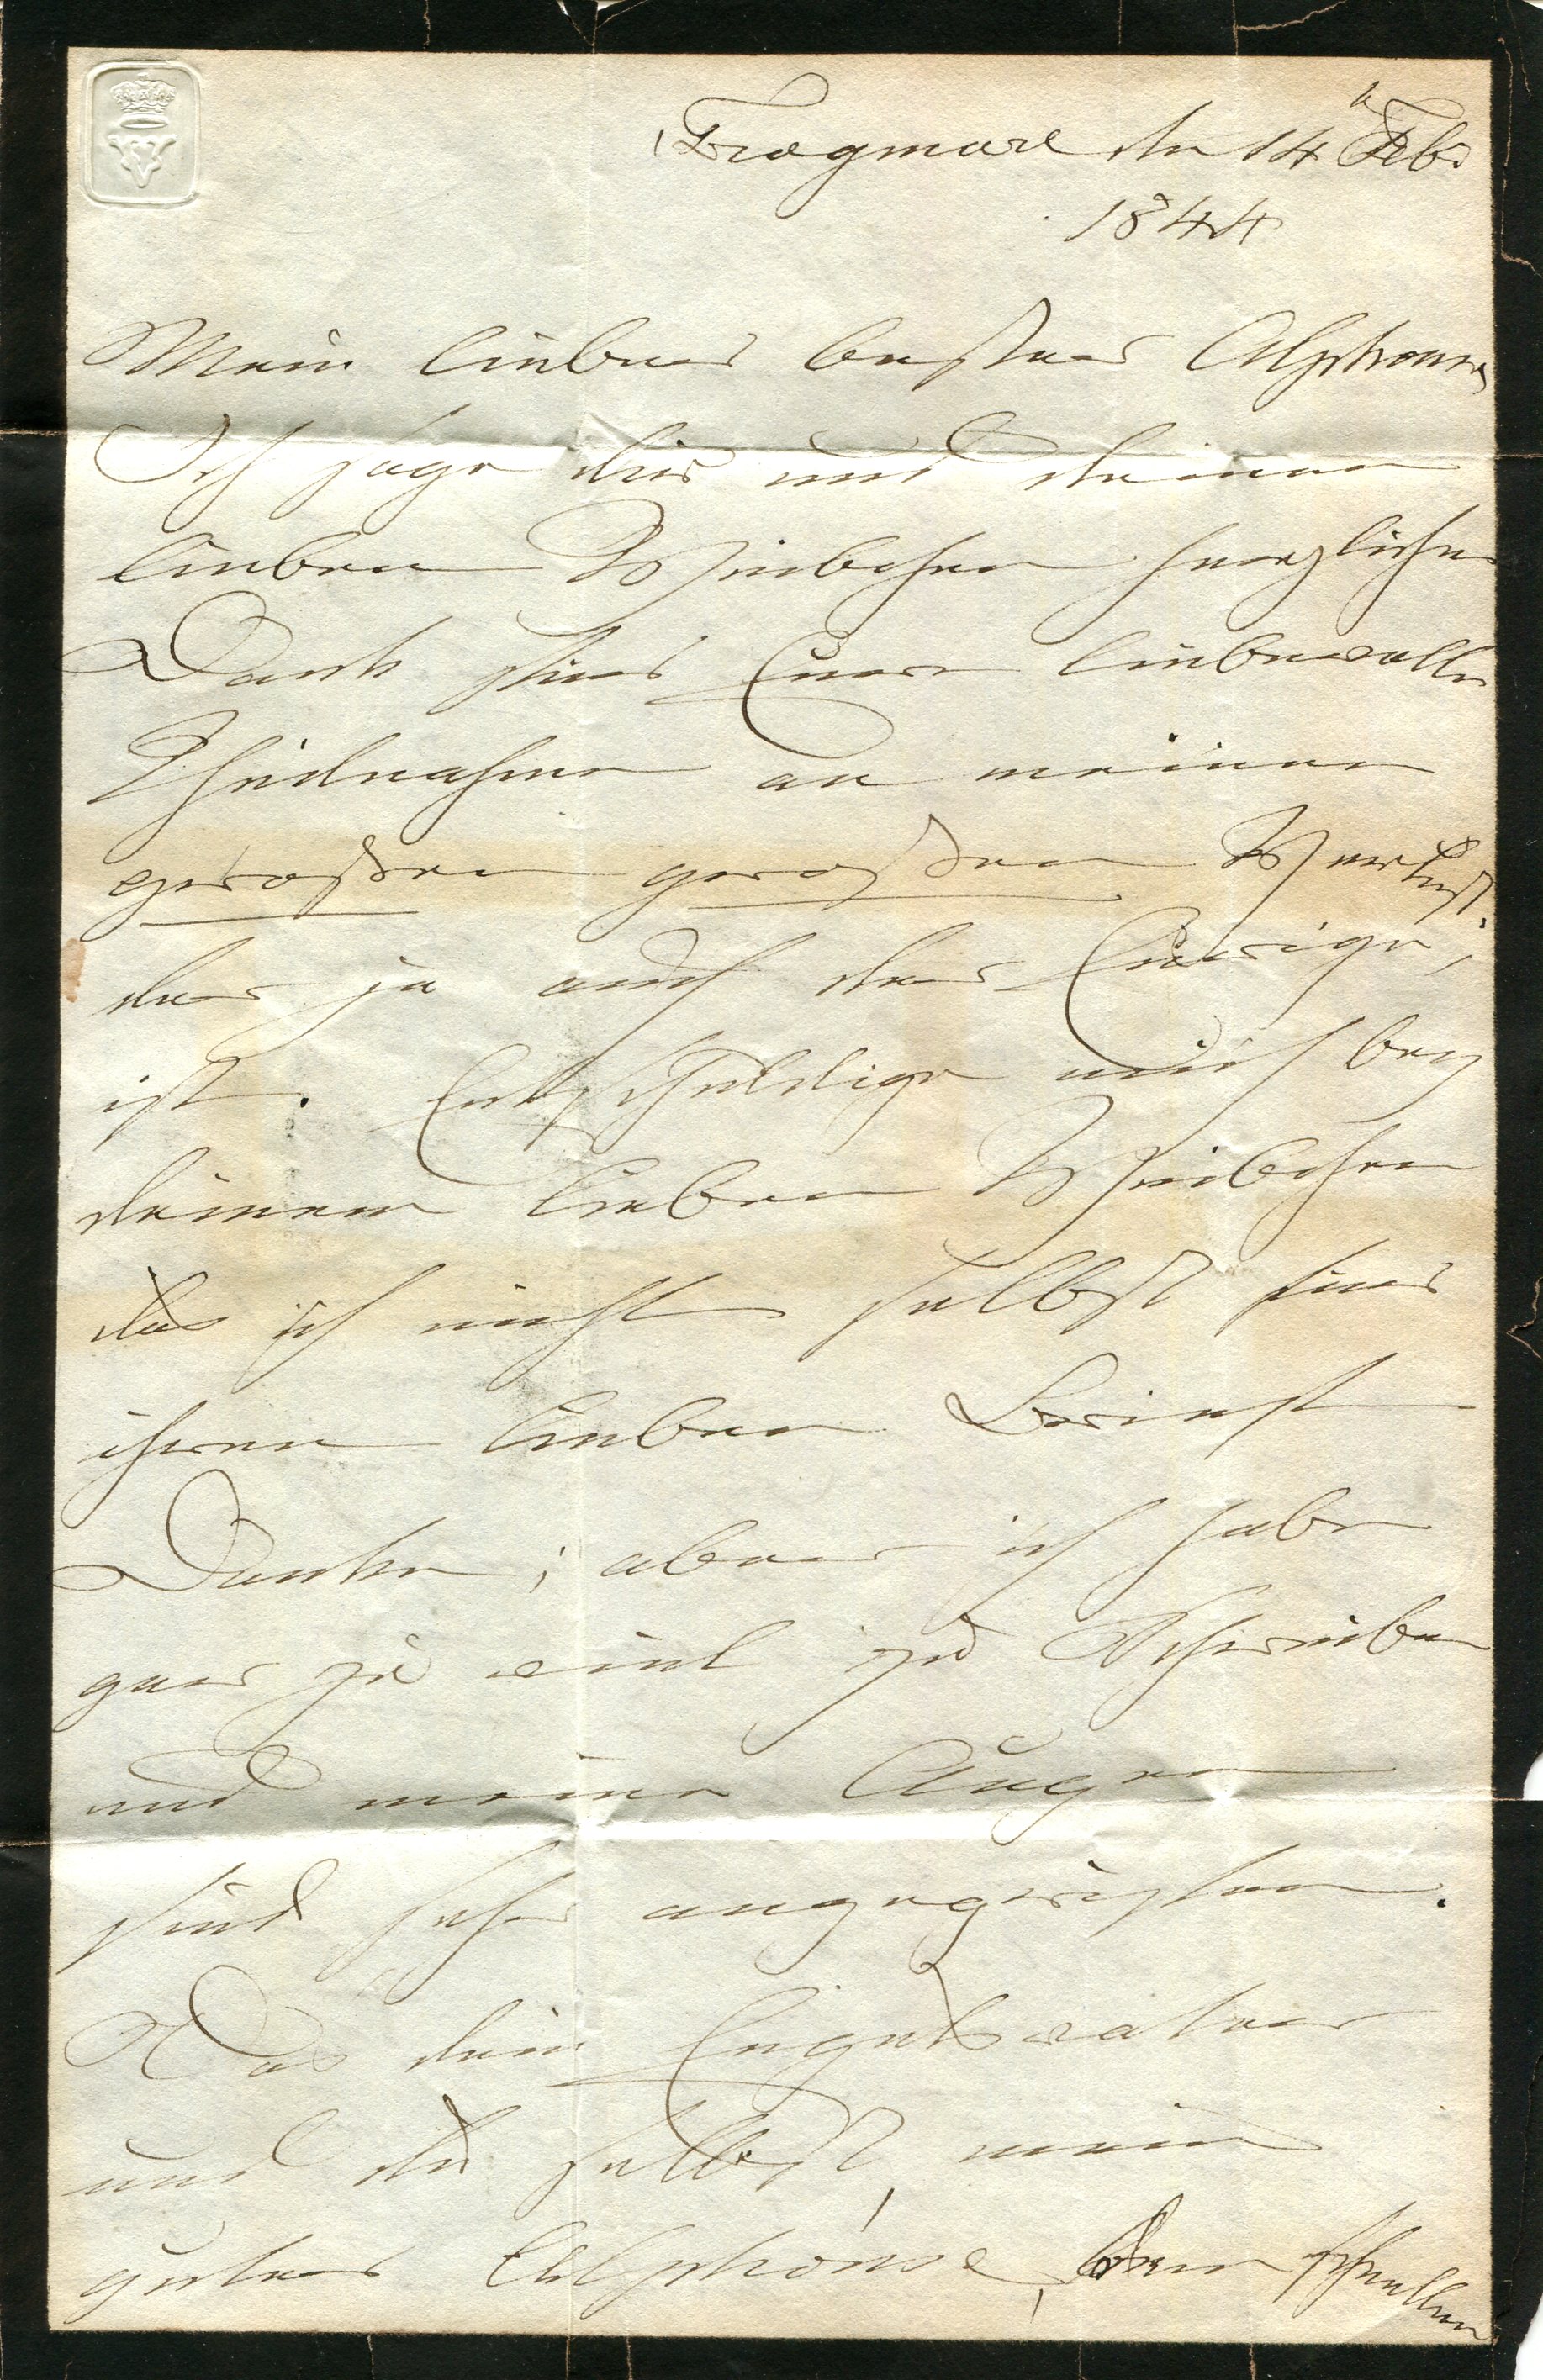 V
Frogmore den 14n Feb.
1844
Mein lieber bester Alphonse,
Ich sage dir und deinem
lieben Weibchen herzlichen
Dank für Eure liebevolle
Theilnahme an meinem
großen großen Verlust,
der ja auch der Eurige,
ist. Entschuldige mich bey
deinem lieben Weibchen
das ich nicht selbst für
ihren lieben Brief
Danke; aber ich habe
gar zu viel zu Schreiben
und meine Augen
sind sehr angegriffen.
Das dein Engelsvater
und du selbst, mein
guter Alphonse, den schnellen